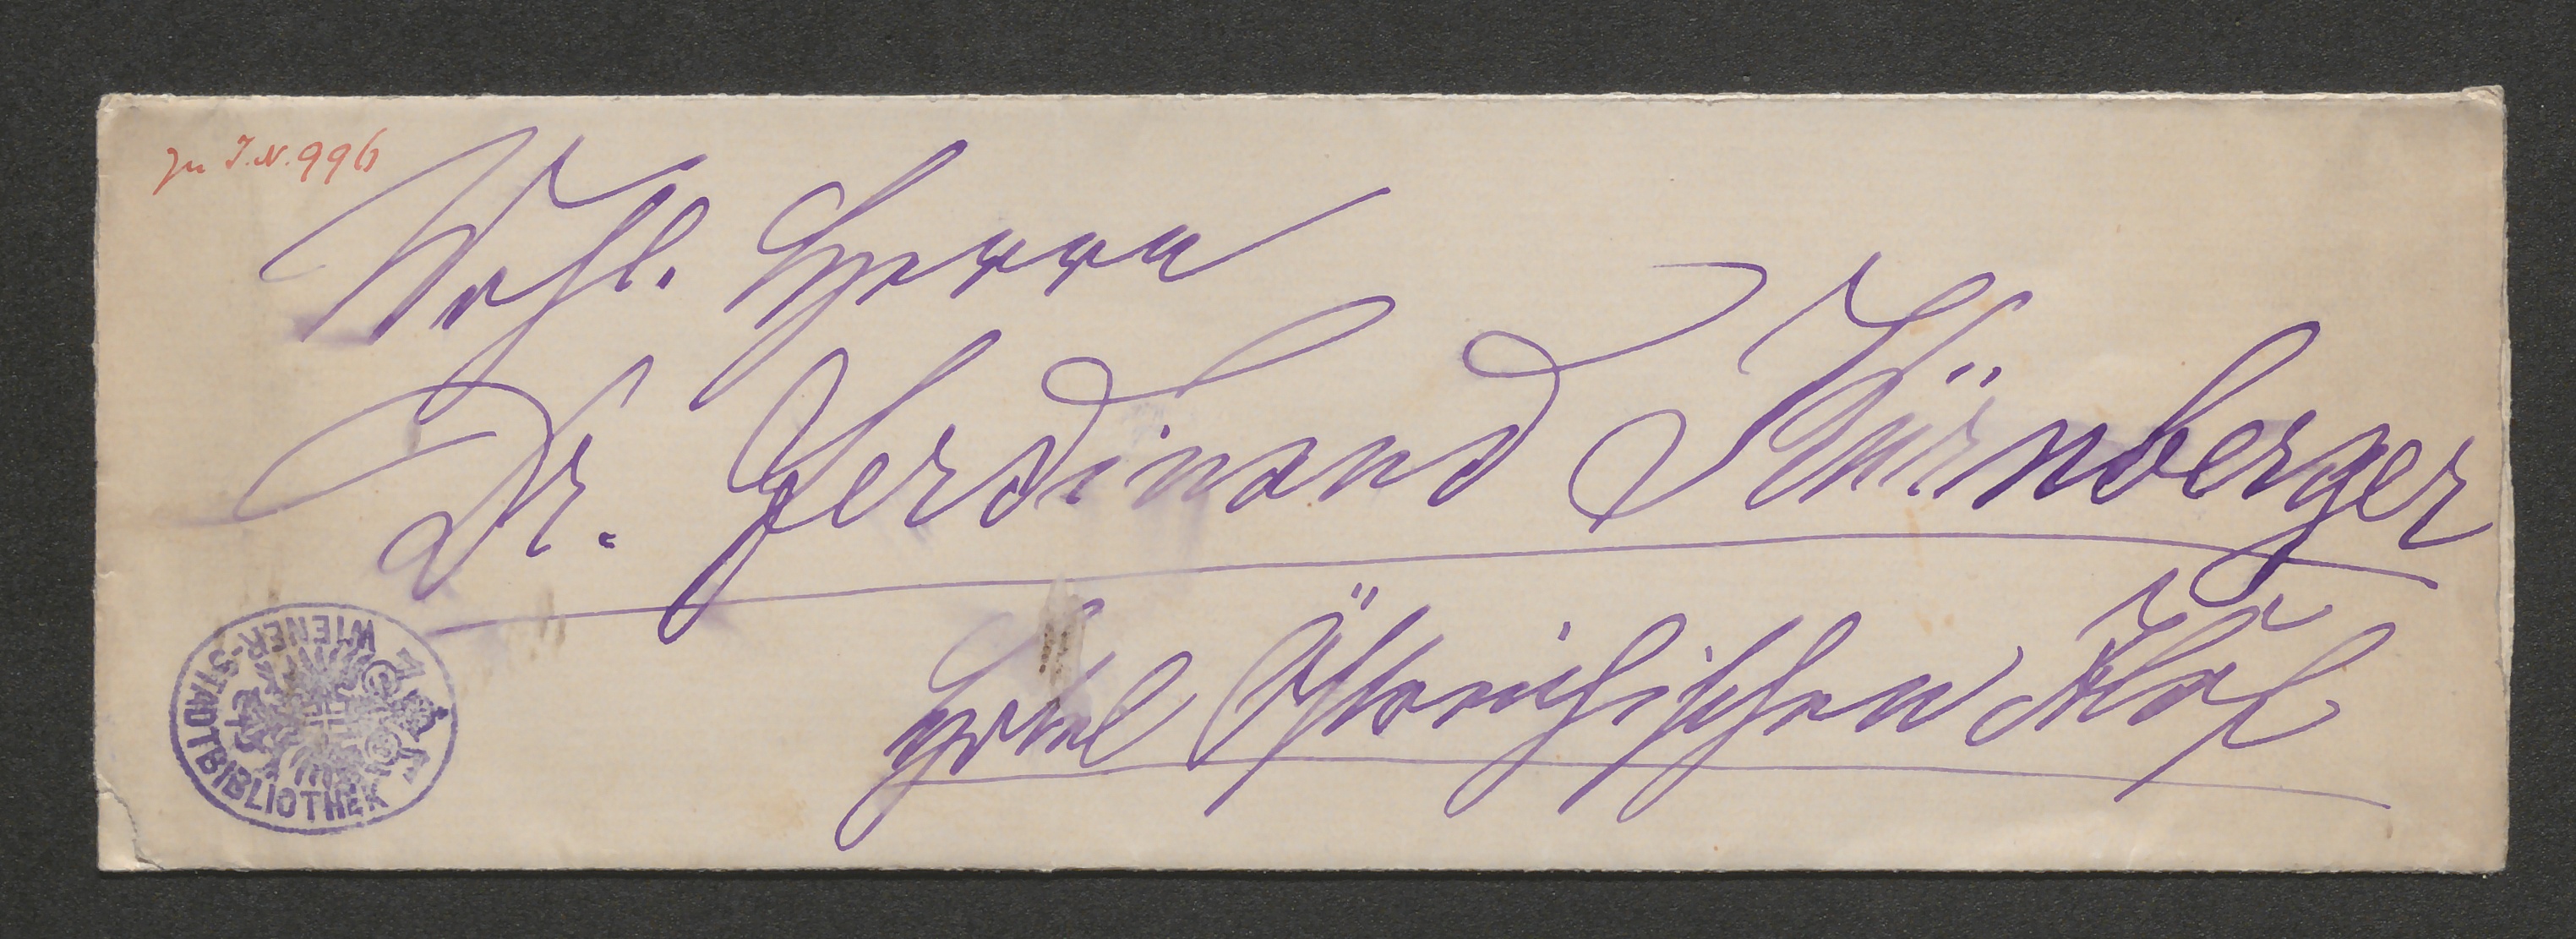 zu I.N. 996
Wohl. Herrn
Dr. Ferdinand Kürnberger
Hotel Österreichischen Hof
WIENER-STADTBIBLIOTHEK